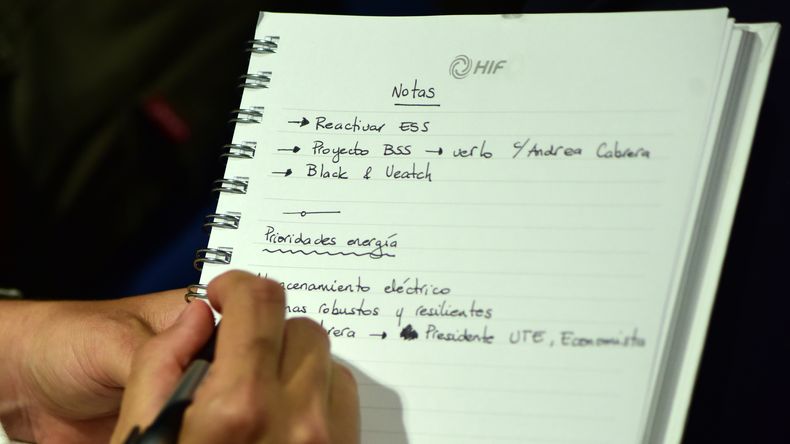 HIF
Notas
→ Reactivar ESS
→ Proyecto BSS → verlo c/Andrea Cabrera
→ Black & Veatch
Prioridades energía
macenamiento eléctrico
mas robustos y resilientes
brera → Presidente UTE, Economista